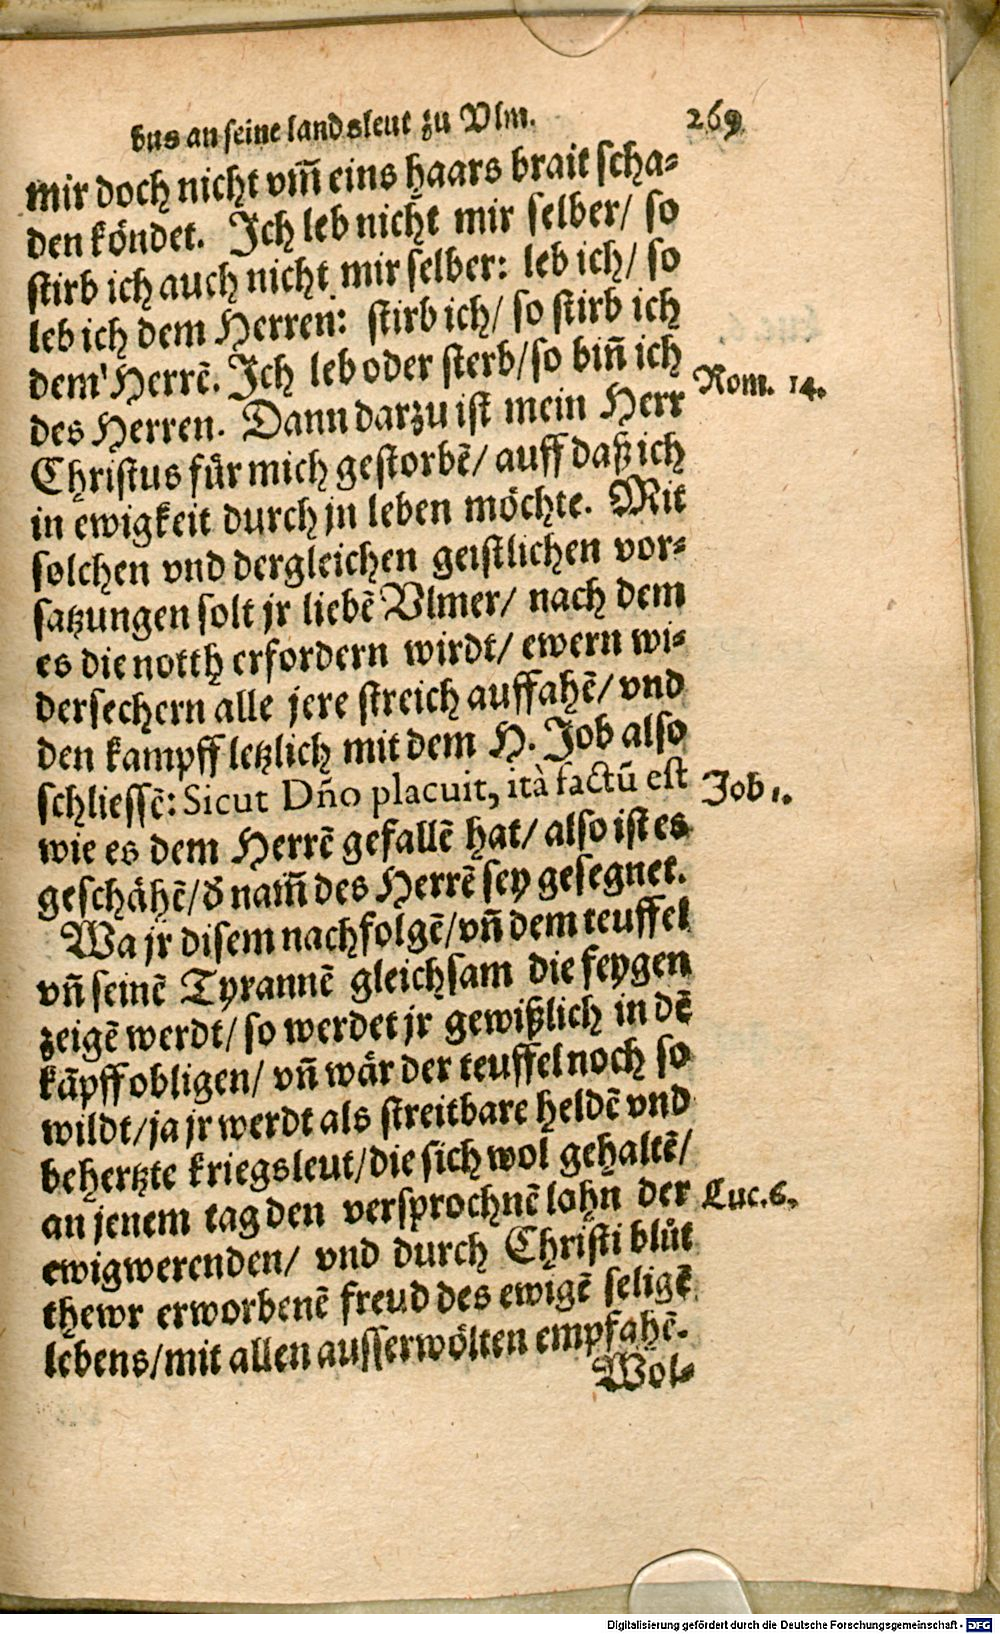 bus an seine landsleut zu Vlm. 269
mir doch nicht vm̃ eins haars brait scha-
den köndet. Ich leb nicht mir selber/ so
stirb ich auch nicht mir selber: leb ich/ so
leb ich dem Herren: stirb ich/ so stirb ich
dem Herrẽ. Ich leb oder sterb/ so biñ ich
Rom. 14.
des Herren. Dann darzu ist mein Herr
Christus für mich gestorbẽ/ auff daß ich
in ewigkeit durch jn leben möchte. Mit
solchen vnd dergleichen geistlichen vor-
satzungen solt jr liebẽ Vlmer/ nach dem
es die notth erfordern wirdt/ ewern wi-
dersechern alle jere streich auffahẽ/ vnd
den kampff letzlich mit dem H. Job also
schliessẽ: Sicut Dño placuit, ità factũ est
Job 1.
wie es dem Herrẽ gefallẽ hat/ also ist es
geschähẽ/ d̕ nam̃ des Herrẽ sey gesegnet.
Wa jr disem nachfolgẽ/ vñ dem teuffel
vñ seinẽ Tyrannẽ gleichsam die feygen
zeigẽ werdt/ so werdet jr gewißlich in dẽ
kãpff obligen/ vñ wär der teuffel noch so
wildt/ ja jr werdt als streitbare heldẽ vnd
behertzte kriegsleut/ die sich wol gehaltẽ/
an jenem tag den versprochnẽ lohn der
Luc. 6.
ewigwerenden/ vnd durch Christi blůt
thewr erworbenẽ freud des ewigẽ seligẽ
lebens/ mit allen ausserwölten empfahẽ.
Wol-
Digitalisierung gefördert durch die Deutsche Forschungsgemeinschaft - DFG